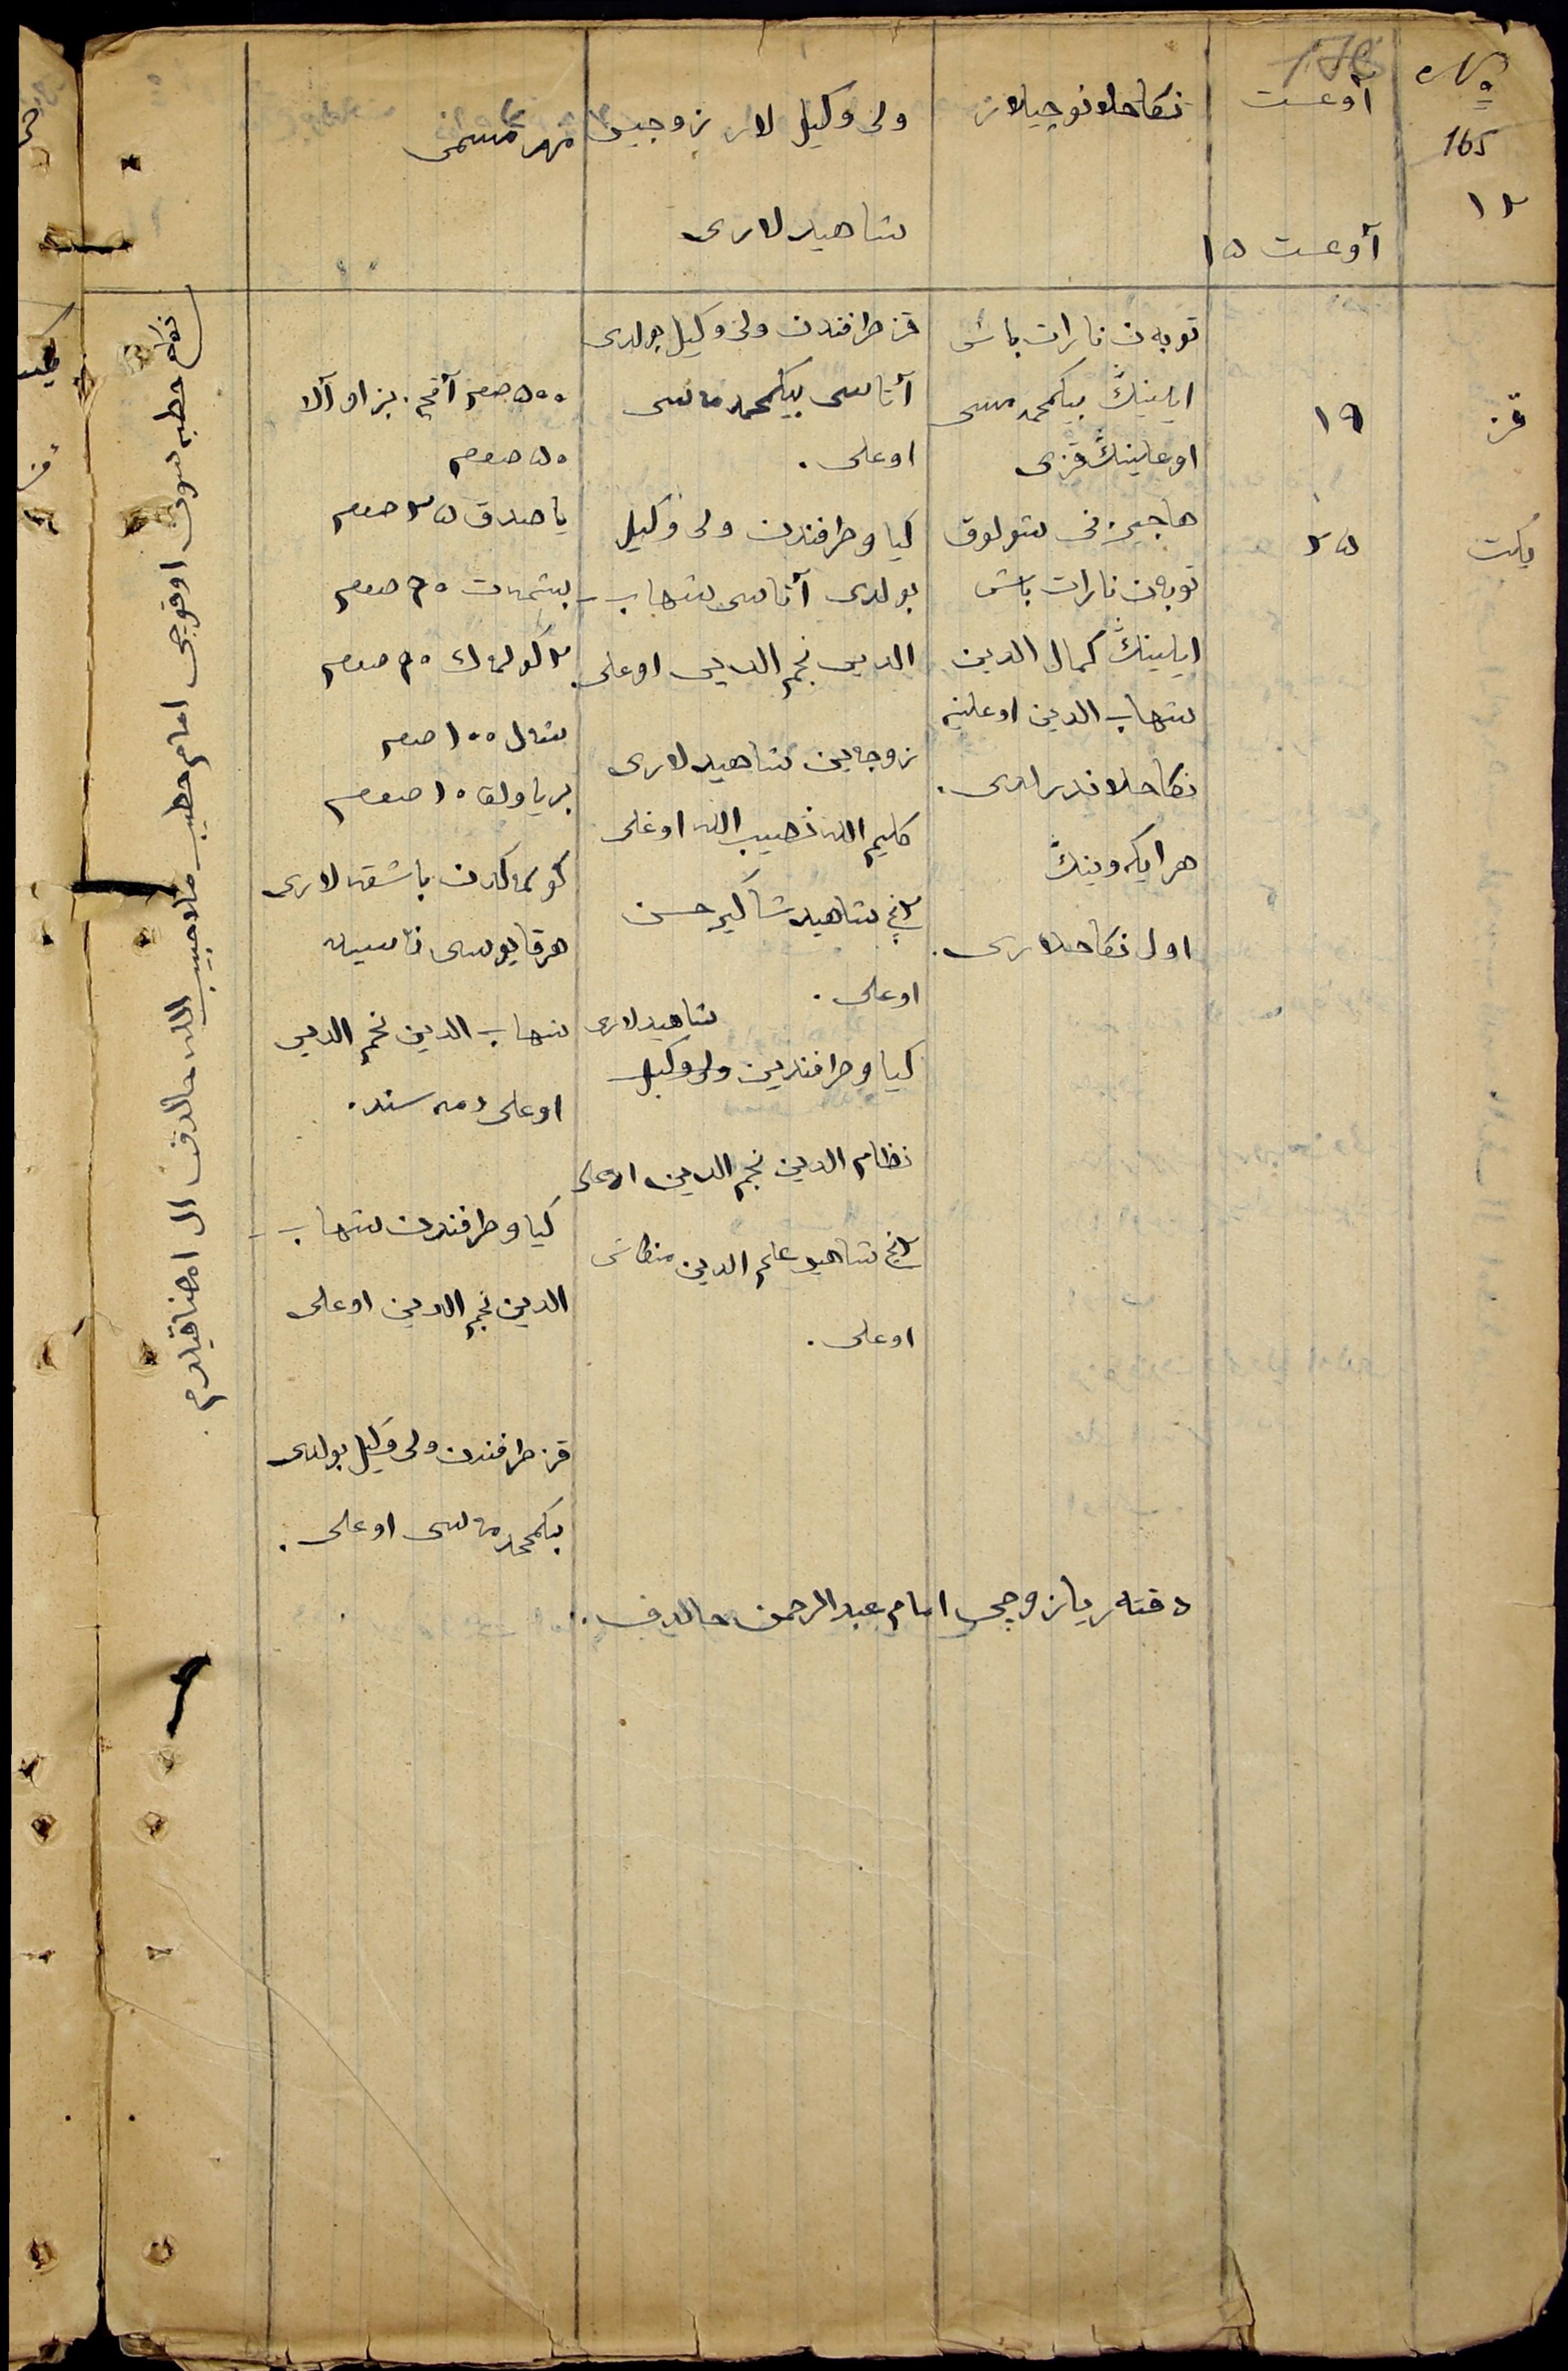 №
165
١٢
آوغست
آوغست ١٥
نكاحلانوچيلار
ولى وكيل لار زوجين
شاهيدلارى
مهر مسمى
قز
١٩
يكت
٢٥
توبەن نارات باش
ايلينڭ بيكمحمد موسى
اوغلينڭ قزى
توبەن نارات باش
ايلينڭ كمال الدين
شهاب الدين اوغلينه
نكاحلاندرلدى.
هر ايكەوينڭ
اول نكاحلارى.
قز طرافندن ولى وكيل بولدى
آتاسى بيكمحمد موسى
اوغلى.
كياو طرافندن ولى وكيل
بولدى آتاسى شهاب
الدين نجم الدين اوغلى.
زوجەين شاهيدلارى
كليم الله حبيب الله اوغلى
٢نچى شاهيد شاكير حسن
اوغلى.
شاهيدلارى
كياو طرافندين ولى وكيل
نظام الدين نجم الدين اوغلى
٢نچى شاهيد علم الدين منطاش
اوغلى.
٥٠٠ صوم آقچه. بزاو آلا
٥٠ صوم
ياصدق ٢٥ صوم
بشمەت ٦٠ صوم
٢ كولمەك ٦٠ صوم
شال ١٠٠ صوم
بر ياولق ١٠ صوم
كولمەكدن باشقه لارى
هر قايوسى ناسيه
شهاب الدين نجم الدين
اوغلى ذمه سنده.
كياو طرافندن شهاب
الدين نجم الدين اوغلى
قز طرافندن ولى وكيل بولدى
بيكمحمد موسى اوغلى.
دفتەر يازوچى امام عبدالرحمن خالدف.
نكاح خطبه سون اوقوچى امام خطيب ملا حبيب الله خالدف ال امضا قيلدم.